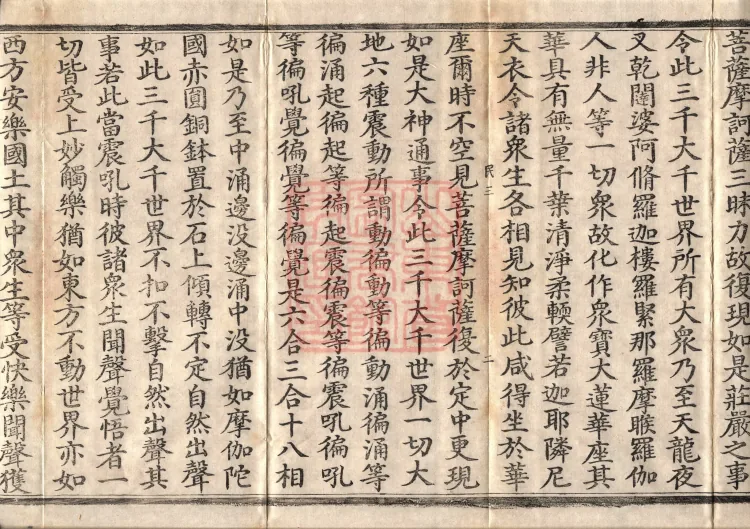 菩薩摩訶薩三昧力故復現如是莊嚴之事
令此三千大千世界所有大衆乃至天龍夜
叉乾闥婆阿脩羅迦樓羅緊那羅摩睺羅伽
人非人等一切衆故化作衆寶大蓮華座其
華具有無量千葉清淨柔輭譬若迦耶隣尼
天衣令諸衆生各相見知彼此咸得坐於華
座爾時不空見菩薩摩訶薩復於定中更現
民三
二
如是大神通事令此三千大千世界一切大
地六種震動所謂動徧動等徧動涌徧涌等
徧涌起徧起等徧起震徧震等徧震吼徧吼
等徧吼覺徧覺等徧覺是六合三合十八相
如是乃至中涌邊没邊涌中没猶如摩伽陀
國赤圓銅鉢置於石上傾轉不定自然出聲
如此三千大千世界不扣不擊自然出聲其
事若此當震吼時彼諸衆生聞聲覺悟者一
切皆受上妙觸樂猶如東方不動世界亦如
西方安樂國土其中衆生等受快樂聞聲獲